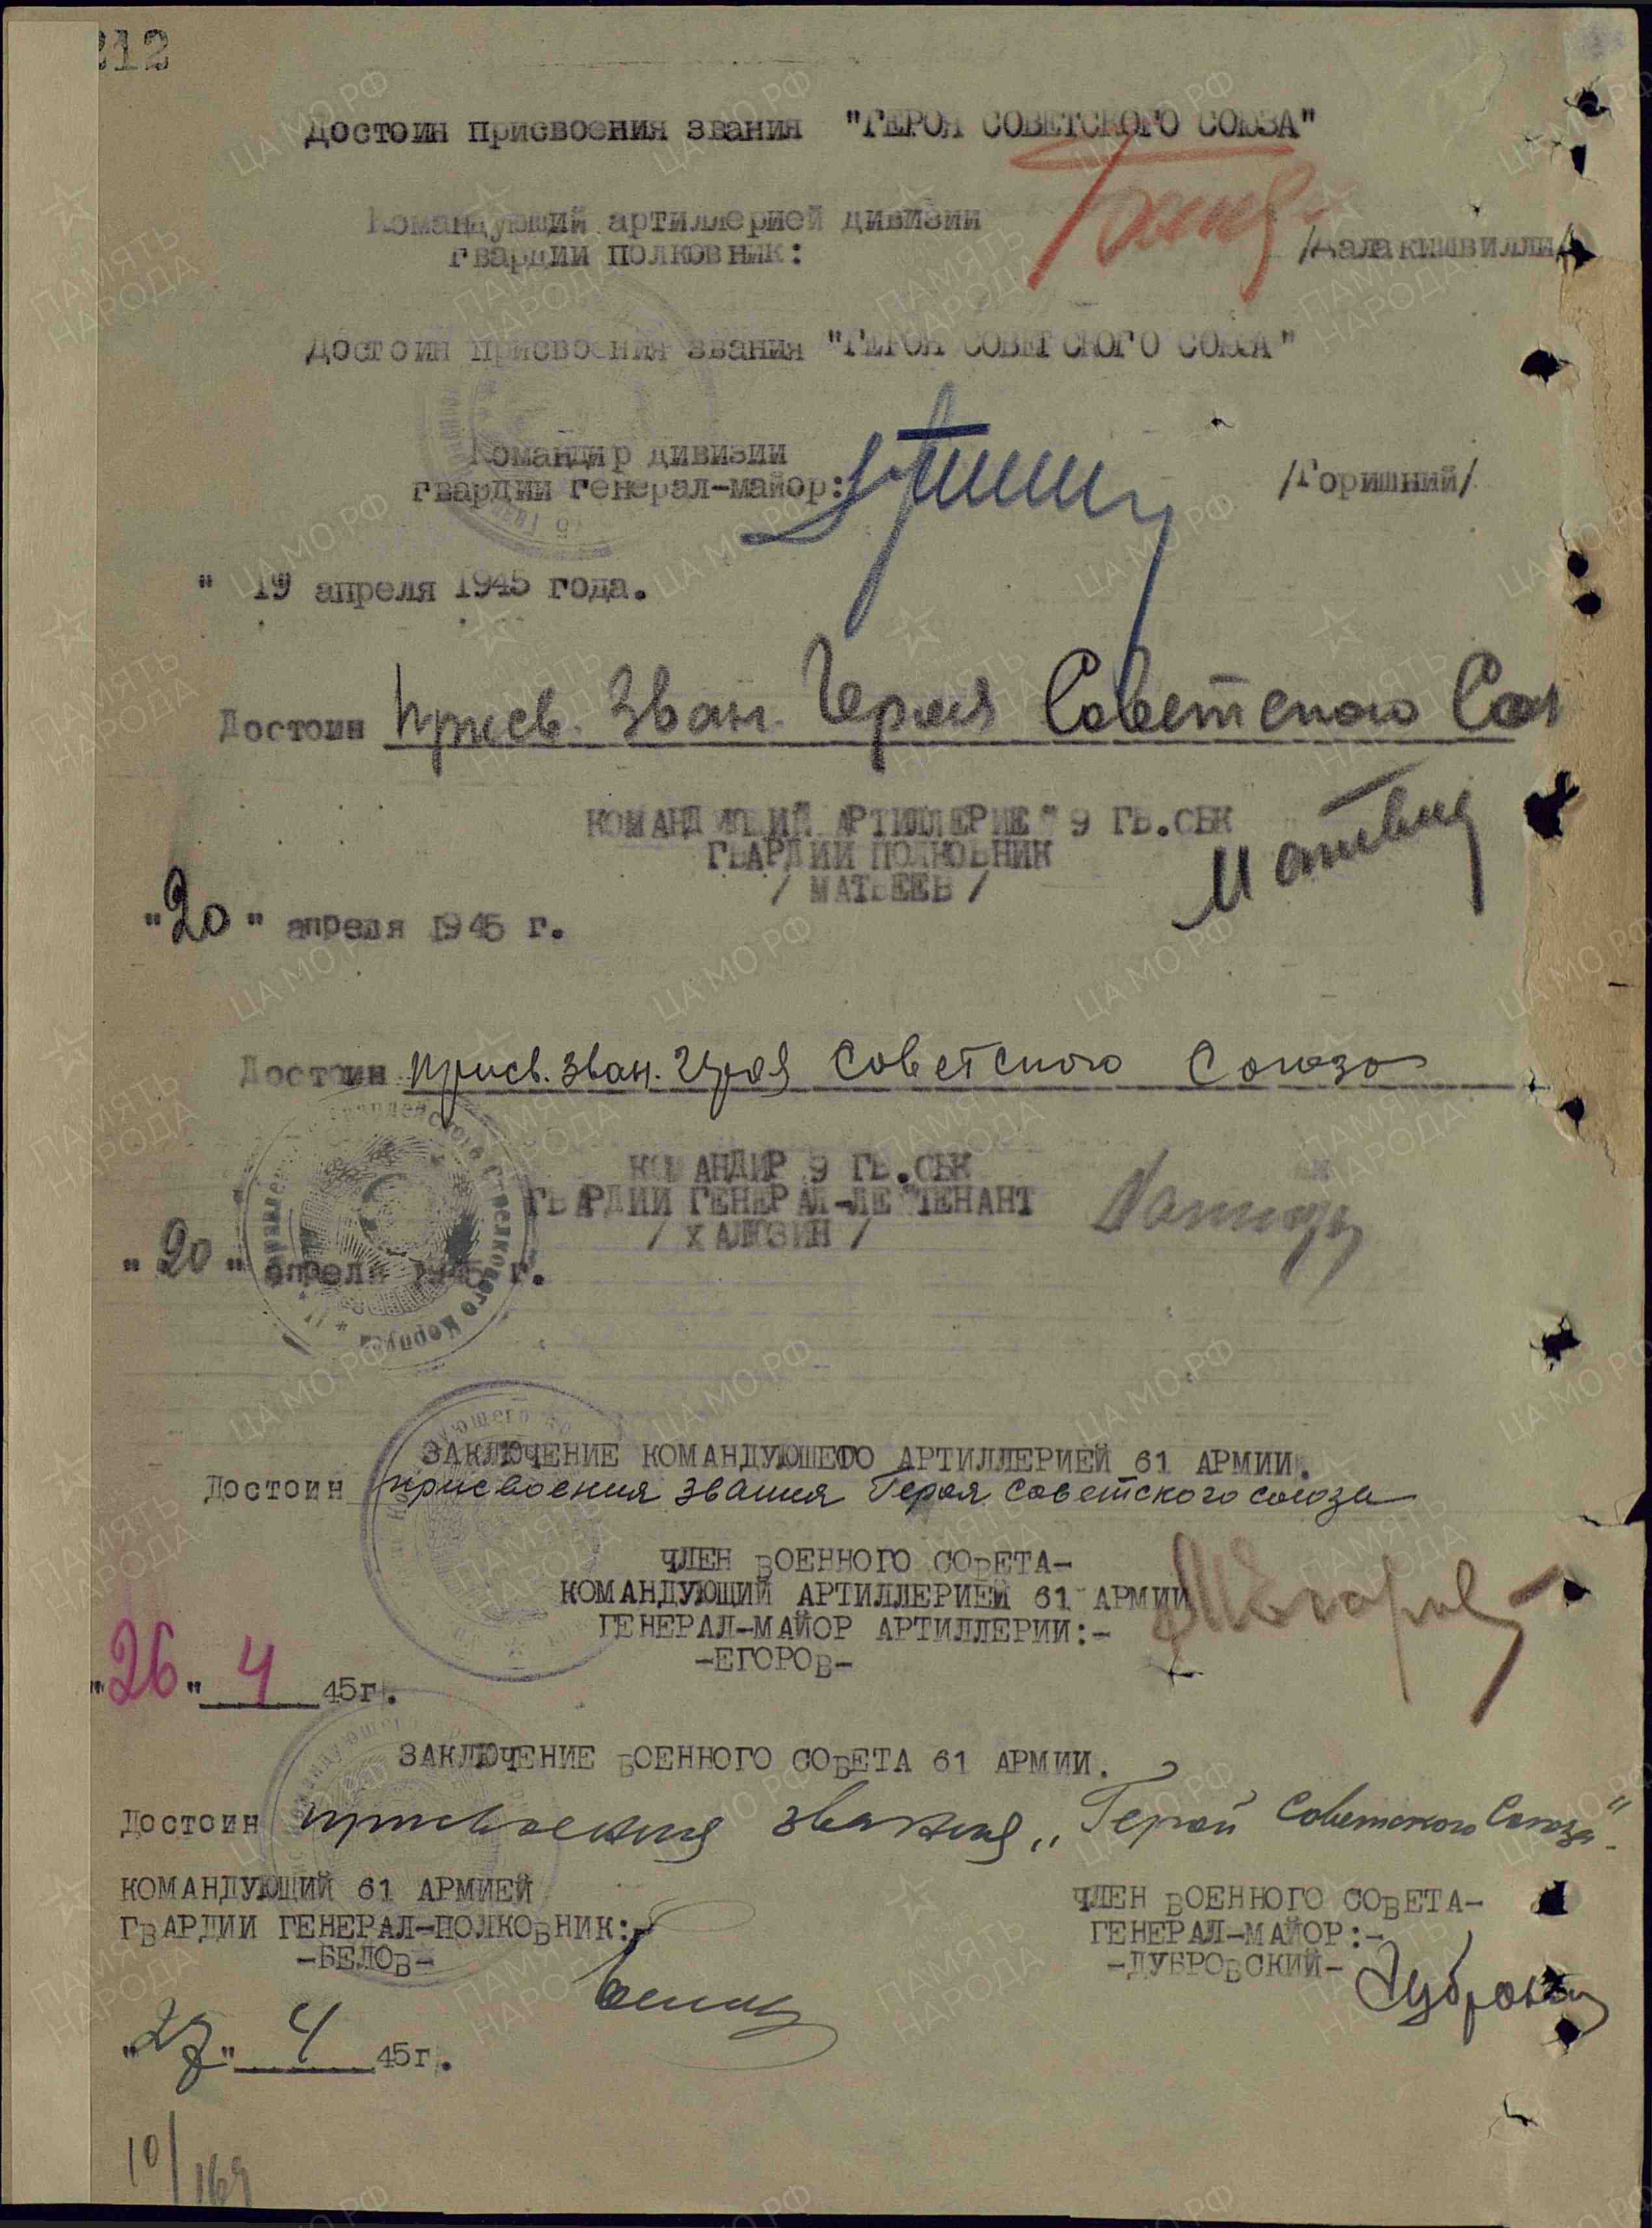 212
Достоин присвоения звания "ГЕРОЯ СОВЕТСКОГО СОЮЗА"
Командующий артиллерией дивизии
гвардии полковник: /Далакишвилли/
Достоин присвоения звания "ГЕРОЯ СОВЕТСКОГО СОЮЗА"
Командир дивизии
гвардии генерал-майор: /Горишний/
" 19 апреля 1945 года.
Достоин присв. Зван. Героя Советского Сою
КОМАНДУЮЩИЙ АРТИЛЛЕРИЕЙ 9 ГВ.СБК
ГВАРДИИ ПОЛКОВНИК
/ МАТВЕЕВ /
"20" апреля 1945 г.
Достоин присв. зван. Героя Советского Союза
КОМАНДИР 9 ГВ.СБК
ГВАРДИИ ГЕНЕРАЛ-ЛЕЙТЕНАНТ
/ ХАЛЮЗИН /
"20" апреля 1945 г.
Стрелкового Корпуса
ЗАКЛЮЧЕНИЕ КОМАНДУЮЩЕГО АРТИЛЛЕРИЕЙ 61 АРМИИ.
Достоин присвоения звания Героя Советского союза
ЧЛЕН ВОЕННОГО СОВЕТА-
КОМАНДУЮЩИЙ АРТИЛЛЕРИЕЙ 61 АРМИИ
ГЕНЕРАЛ-МАЙОР АРТИЛЛЕРИИ:-
-ЕГОРОВ-
"26" 4 45г.
ЗАКЛЮЧЕНИЕ ВОЕННОГО СОВЕТА 61 АРМИИ.
Достоин присвоения звания „Герой Советского Союза"
КОМАНДУЮЩИЙ 61 АРМИЕЙ
ГВАРДИИ ГЕНЕРАЛ-ПОЛКОВНИК:-
-БЕЛОВ-
ЧЛЕН ВОЕННОГО СОВЕТА-
ГЕНЕРАЛ-МАЙОР:-
-ДУБРОВСКИЙ-
"27" 4 45г.
10/169
ПАМЯТЬ НАРОДА
ЦА МО РФ